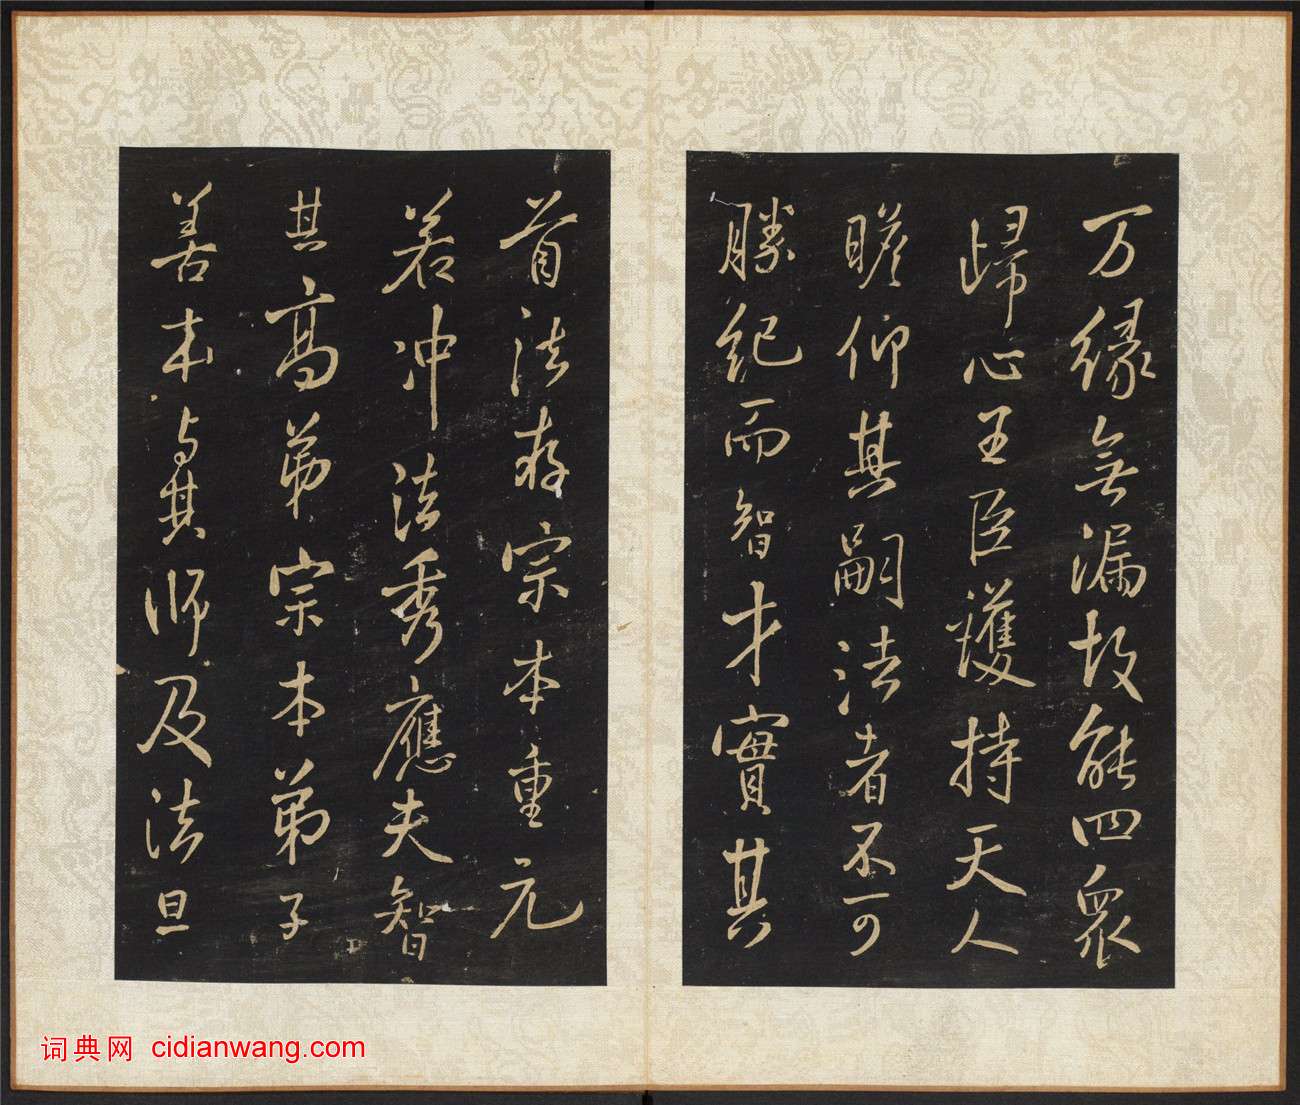 万缘無漏故能四衆
歸心王臣護持天人
瞻仰其嗣法者不可
勝紀而智才實其
首法存宗本重元
若冲法秀應夫智
其高弟宗本弟子
善本与其师及法
旦
词典网 cidianwang.com